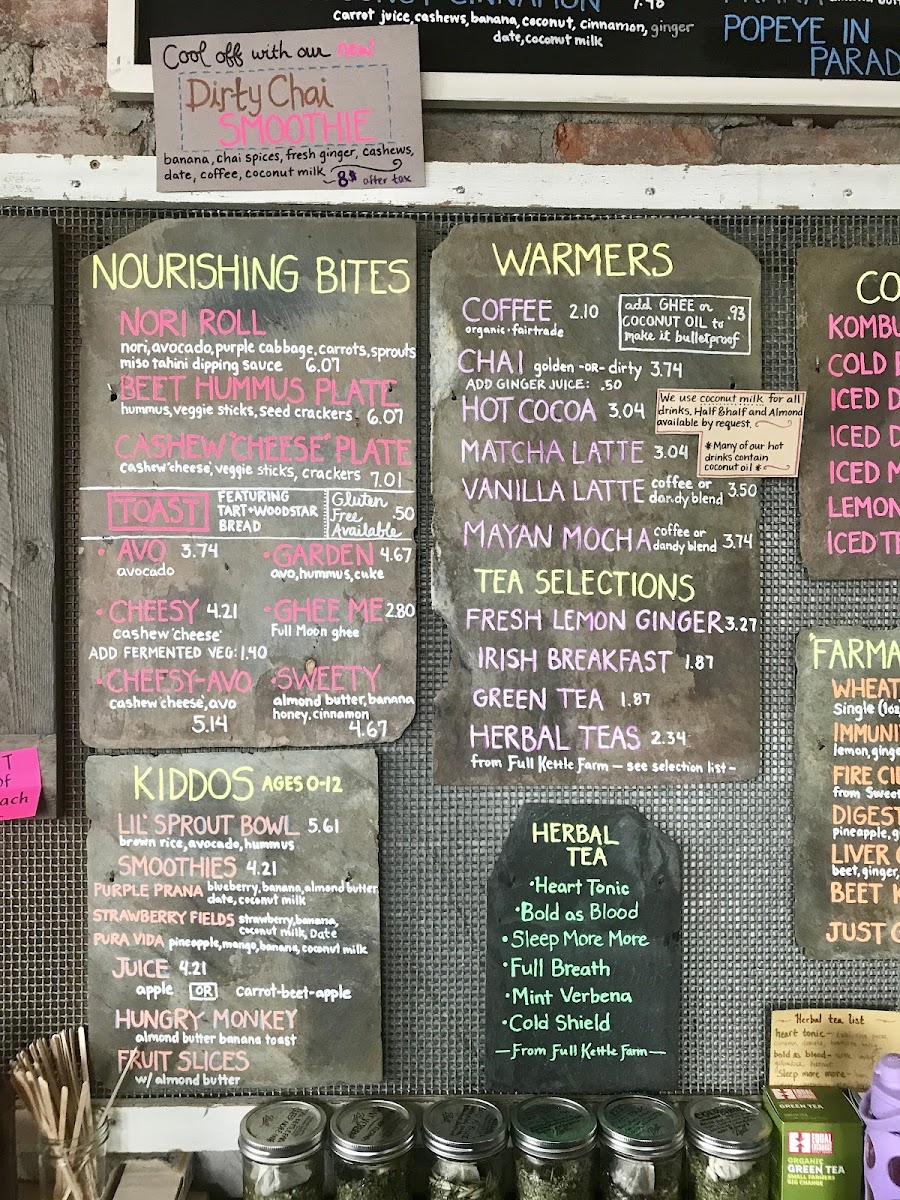 CINNAMON
carrot juice, cashews, banana, coconut, cinnamon, ginger
date, coconut milk
POPEYE IN
PARAD
Cool off with our new
Dirty Chai
SMOOTHIE
banana, chai spices, fresh ginger, cashews,
date, coffee, coconut milk 8$ after tax
NOURISHING BITES
NORI ROLL
nori, avocado, purple cabbage, carrots, sprouts
miso tahini dipping sauce 6.07
BEET HUMMUS PLATE
hummus, veggie sticks, seed crackers 6.07
CASHEW "CHEESE" PLATE
cashew 'cheese', veggie sticks, crackers 7.01
TOAST
FEATURING
TART • WOODSTAR
BREAD
Gluten
Free .50
Available
• AVO 3.74
avocado
• GARDEN 4.67
avo, hummus, cuke
• CHEESY 4.21
cashew 'cheese'
ADD FERMENTED VEG: 1.40
• GHEE ME 2.80
Full Moon ghee
• CHEESY-AVO
cashew 'cheese', avo
5.14
• SWEETY
almond butter, banana
honey, cinnamon
4.67
KIDDOS AGES 0-12
LIL' SPROUT BOWL 5.61
brown rice, avocado, hummus
SMOOTHIES 4.21
PURPLE PRANA blueberry, banana, almond butter,
date, coconut milk
STRAWBERRY FIELDS strawberry, banana,
coconut milk, Date
PURA VIDA pineapple, mango, banana, coconut milk
JUICE 4.21
apple OR carrot-beet-apple
HUNGRY MONKEY
almond butter banana toast
FRUIT SLICES
w/ almond butter
WARMERS
COFFEE 2.10
organic • fairtrade
add GHEE or .93
COCONUT OIL to
make it bulletproof
CHAI golden -OR- dirty 3.74
ADD GINGER JUICE: .50
HOT COCOA 3.04
We use coconut milk for all
drinks. Half & half and Almond
available by request.
* Many of our hot
drinks contain
coconut oil *
MATCHA LATTE 3.04
VANILLA LATTE coffee or
dandy blend 3.50
MAYAN MOCHA coffee or
dandy blend 3.74
TEA SELECTIONS
FRESH LEMON GINGER 3.27
IRISH BREAKFAST 1.87
GREEN TEA 1.87
HERBAL TEAS 2.34
from Full Kettle Farm — see selection list —
HERBAL
TEA
• Heart Tonic
• Bold as Blood
• Sleep More More
• Full Breath
• Mint Verbena
• Cold Shield
— From Full Kettle Farm —
CO
KOMBU
COLD B
ICED D
ICED D
ICED M
LEMON
ICED TE
"FARMA
WHEAT
Single (1oz
IMMUNI
lemon, ginge
FIRE CI
from Sweet
DIGEST
pineapple, g
LIVER
beet, ginger,
BEET K
JUST
T
of
each
Herbal tea list
heart tonic -
bold as blood -
Sleep more more -
GREEN TEA
EQUAL
EXCHANGE
ORGANIC
GREEN TEA
SMALL FARMERS
BIG CHANGE